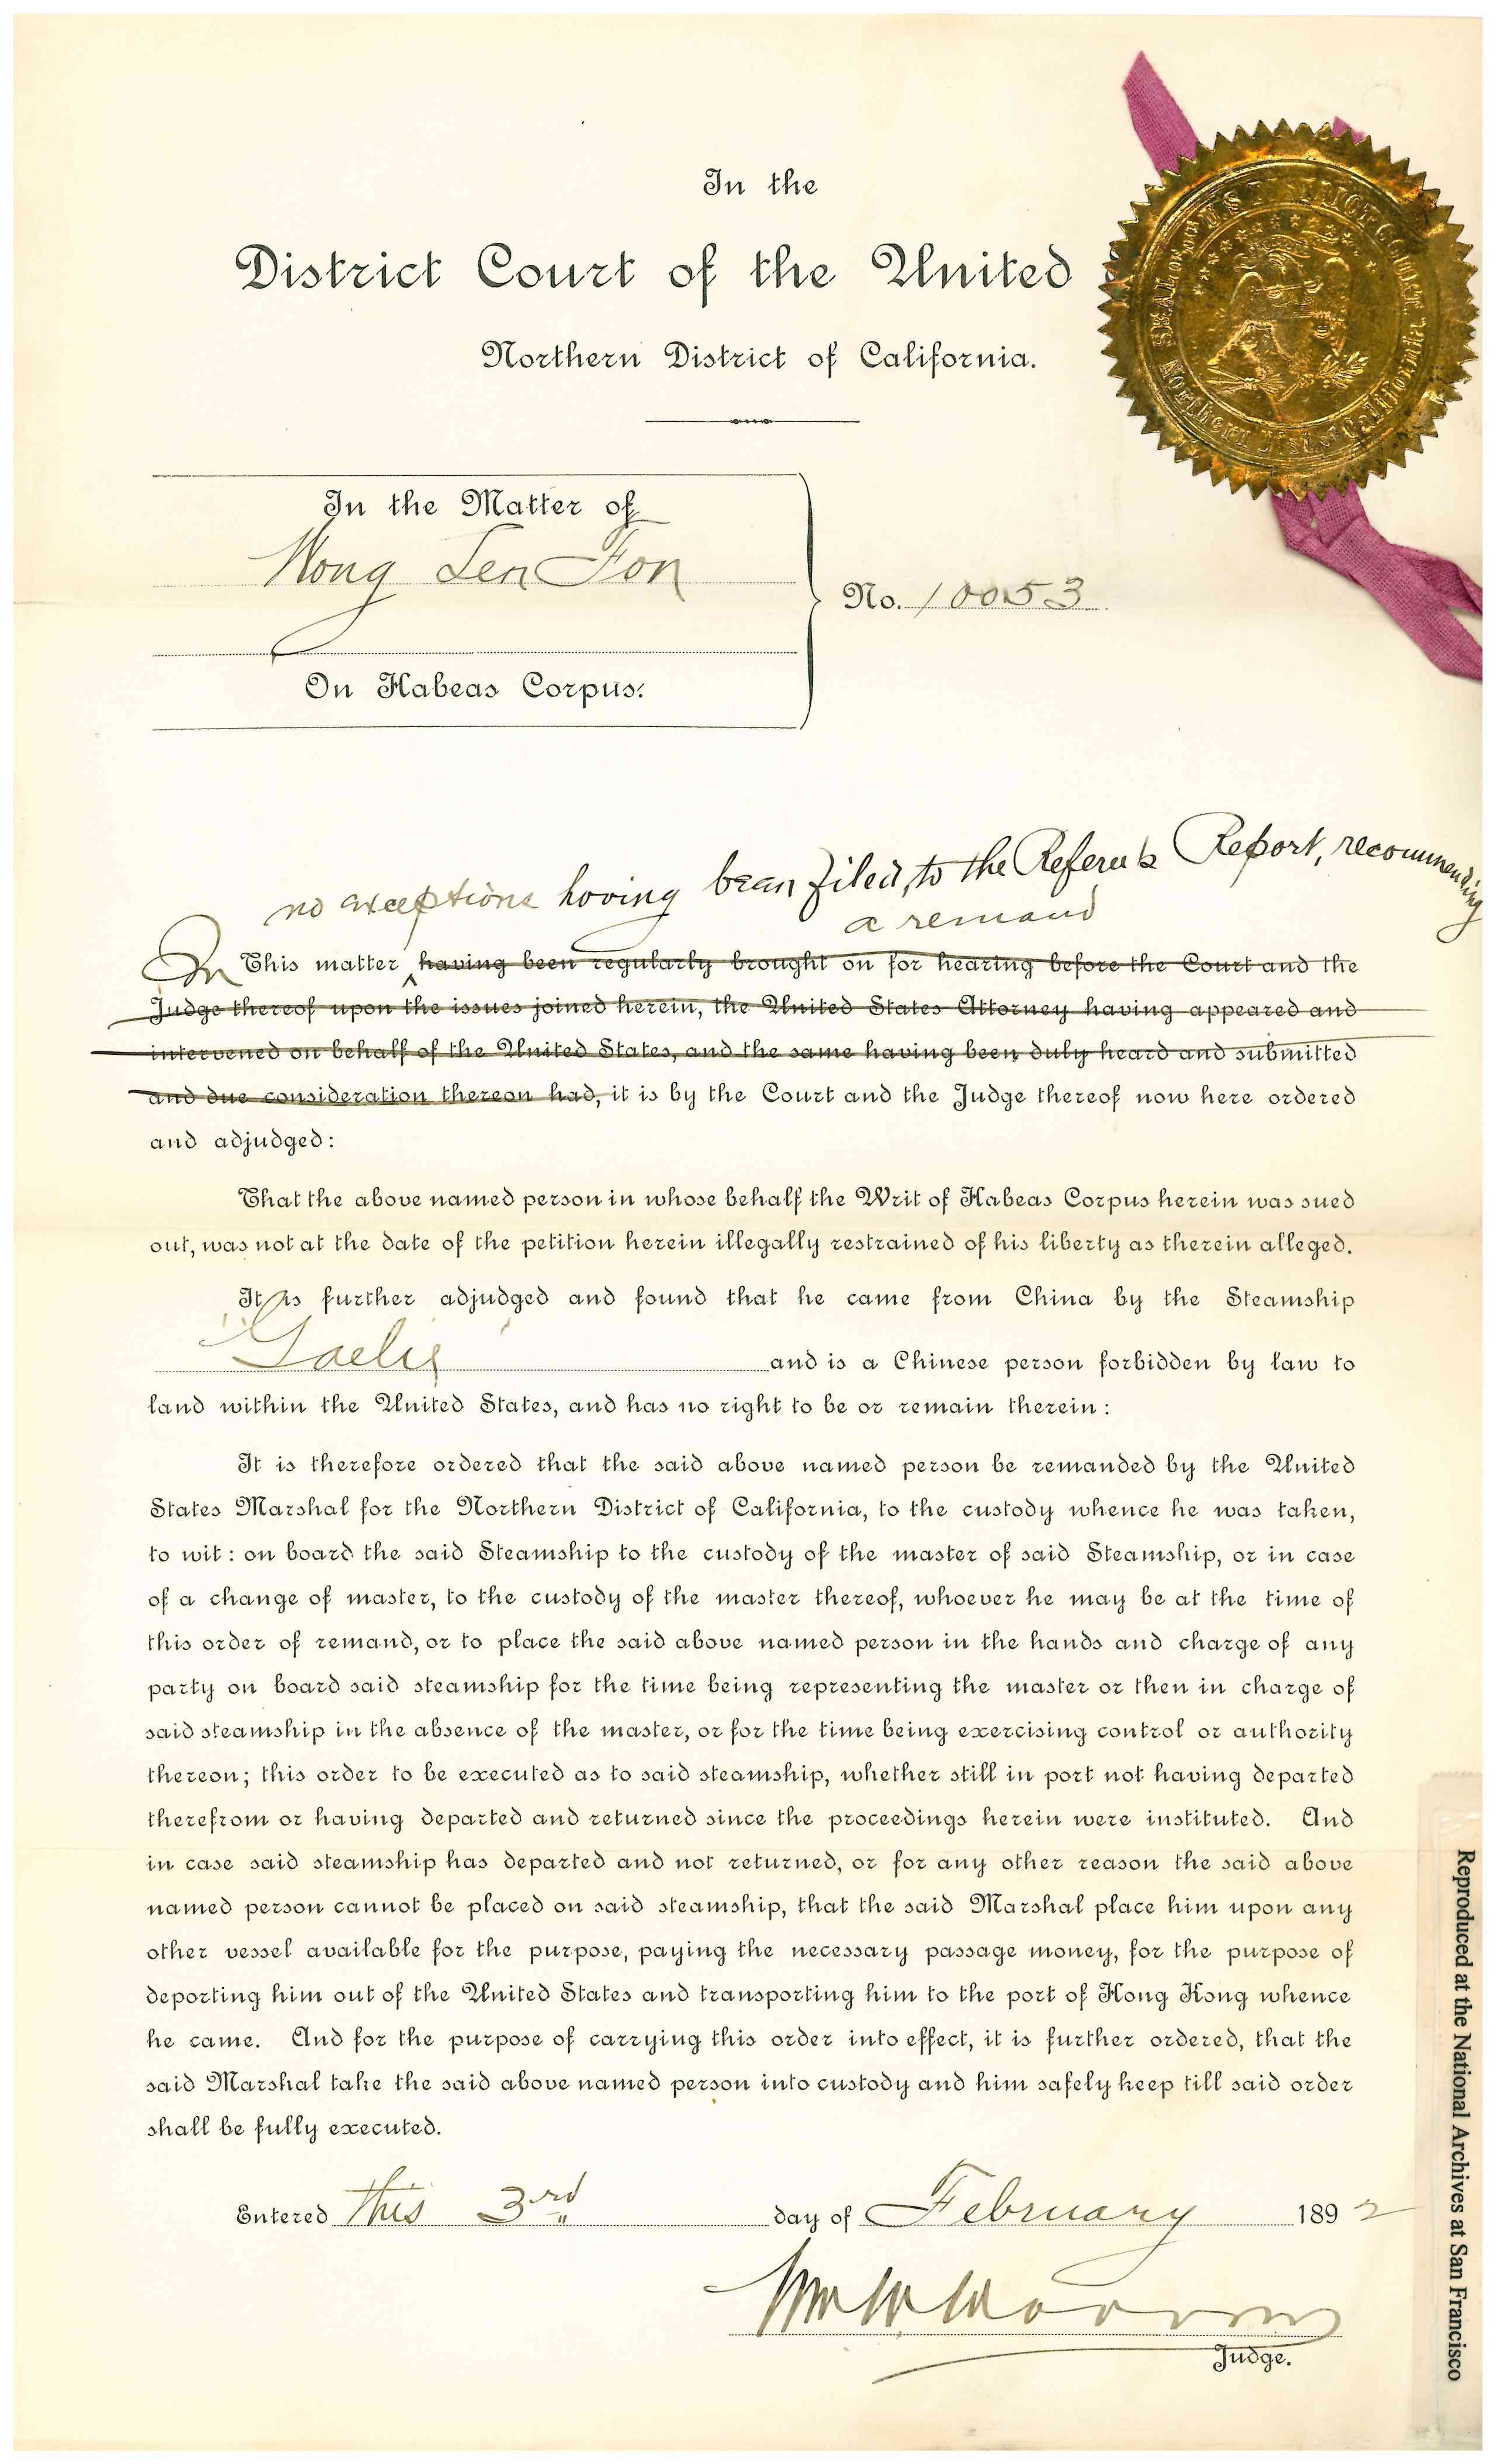 In the
District Court of the United
Northern District of California.
In the Matter of
Wong Sen Fon
No. 10053
On Habeas Corpus.
no exceptions having been filed, to the Referee's Report, recommending
a remand
In This matter having been regularly brought on for hearing before the Court and the
Judge thereof upon the issues joined herein, the United States Attorney having appeared and
intervened on behalf of the United States, and the same having been duly heard and submitted
and due consideration thereon had, it is by the Court and the Judge thereof now here ordered
and adjudged:
That the above named person in whose behalf the Writ of Habeas Corpus herein was sued
out, was not at the date of the petition herein illegally restrained of his liberty as therein alleged.
It is further adjudged and found that he came from China by the Steamship
Gaelic and is a Chinese person forbidden by law to
land within the United States, and has no right to be or remain therein:
It is therefore ordered that the said above named person be remanded by the United
States Marshal for the Northern District of California, to the custody whence he was taken,
to wit: on board the said Steamship to the custody of the master of said Steamship, or in case
of a change of master, to the custody of the master thereof, whoever he may be at the time of
this order of remand, or to place the said above named person in the hands and charge of any
party on board said steamship for the time being representing the master or then in charge of
said steamship in the absence of the master, or for the time being exercising control or authority
thereon; this order to be executed as to said steamship, whether still in port not having departed
therefrom or having departed and returned since the proceedings herein were instituted. And
in case said steamship has departed and not returned, or for any other reason the said above
named person cannot be placed on said steamship, that the said Marshal place him upon any
other vessel available for the purpose, paying the necessary passage money, for the purpose of
deporting him out of the United States and transporting him to the port of Hong Kong whence
he came. And for the purpose of carrying this order into effect, it is further ordered, that the
said Marshal take the said above named person into custody and him safely keep till said order
shall be fully executed.
Entered this 3rd day of February 1892
Wm W Morrow
Judge.
SEAL OF THE U.S. DISTRICT COURT
Northern Dist. of California
Reproduced at the National Archives at San Francisco